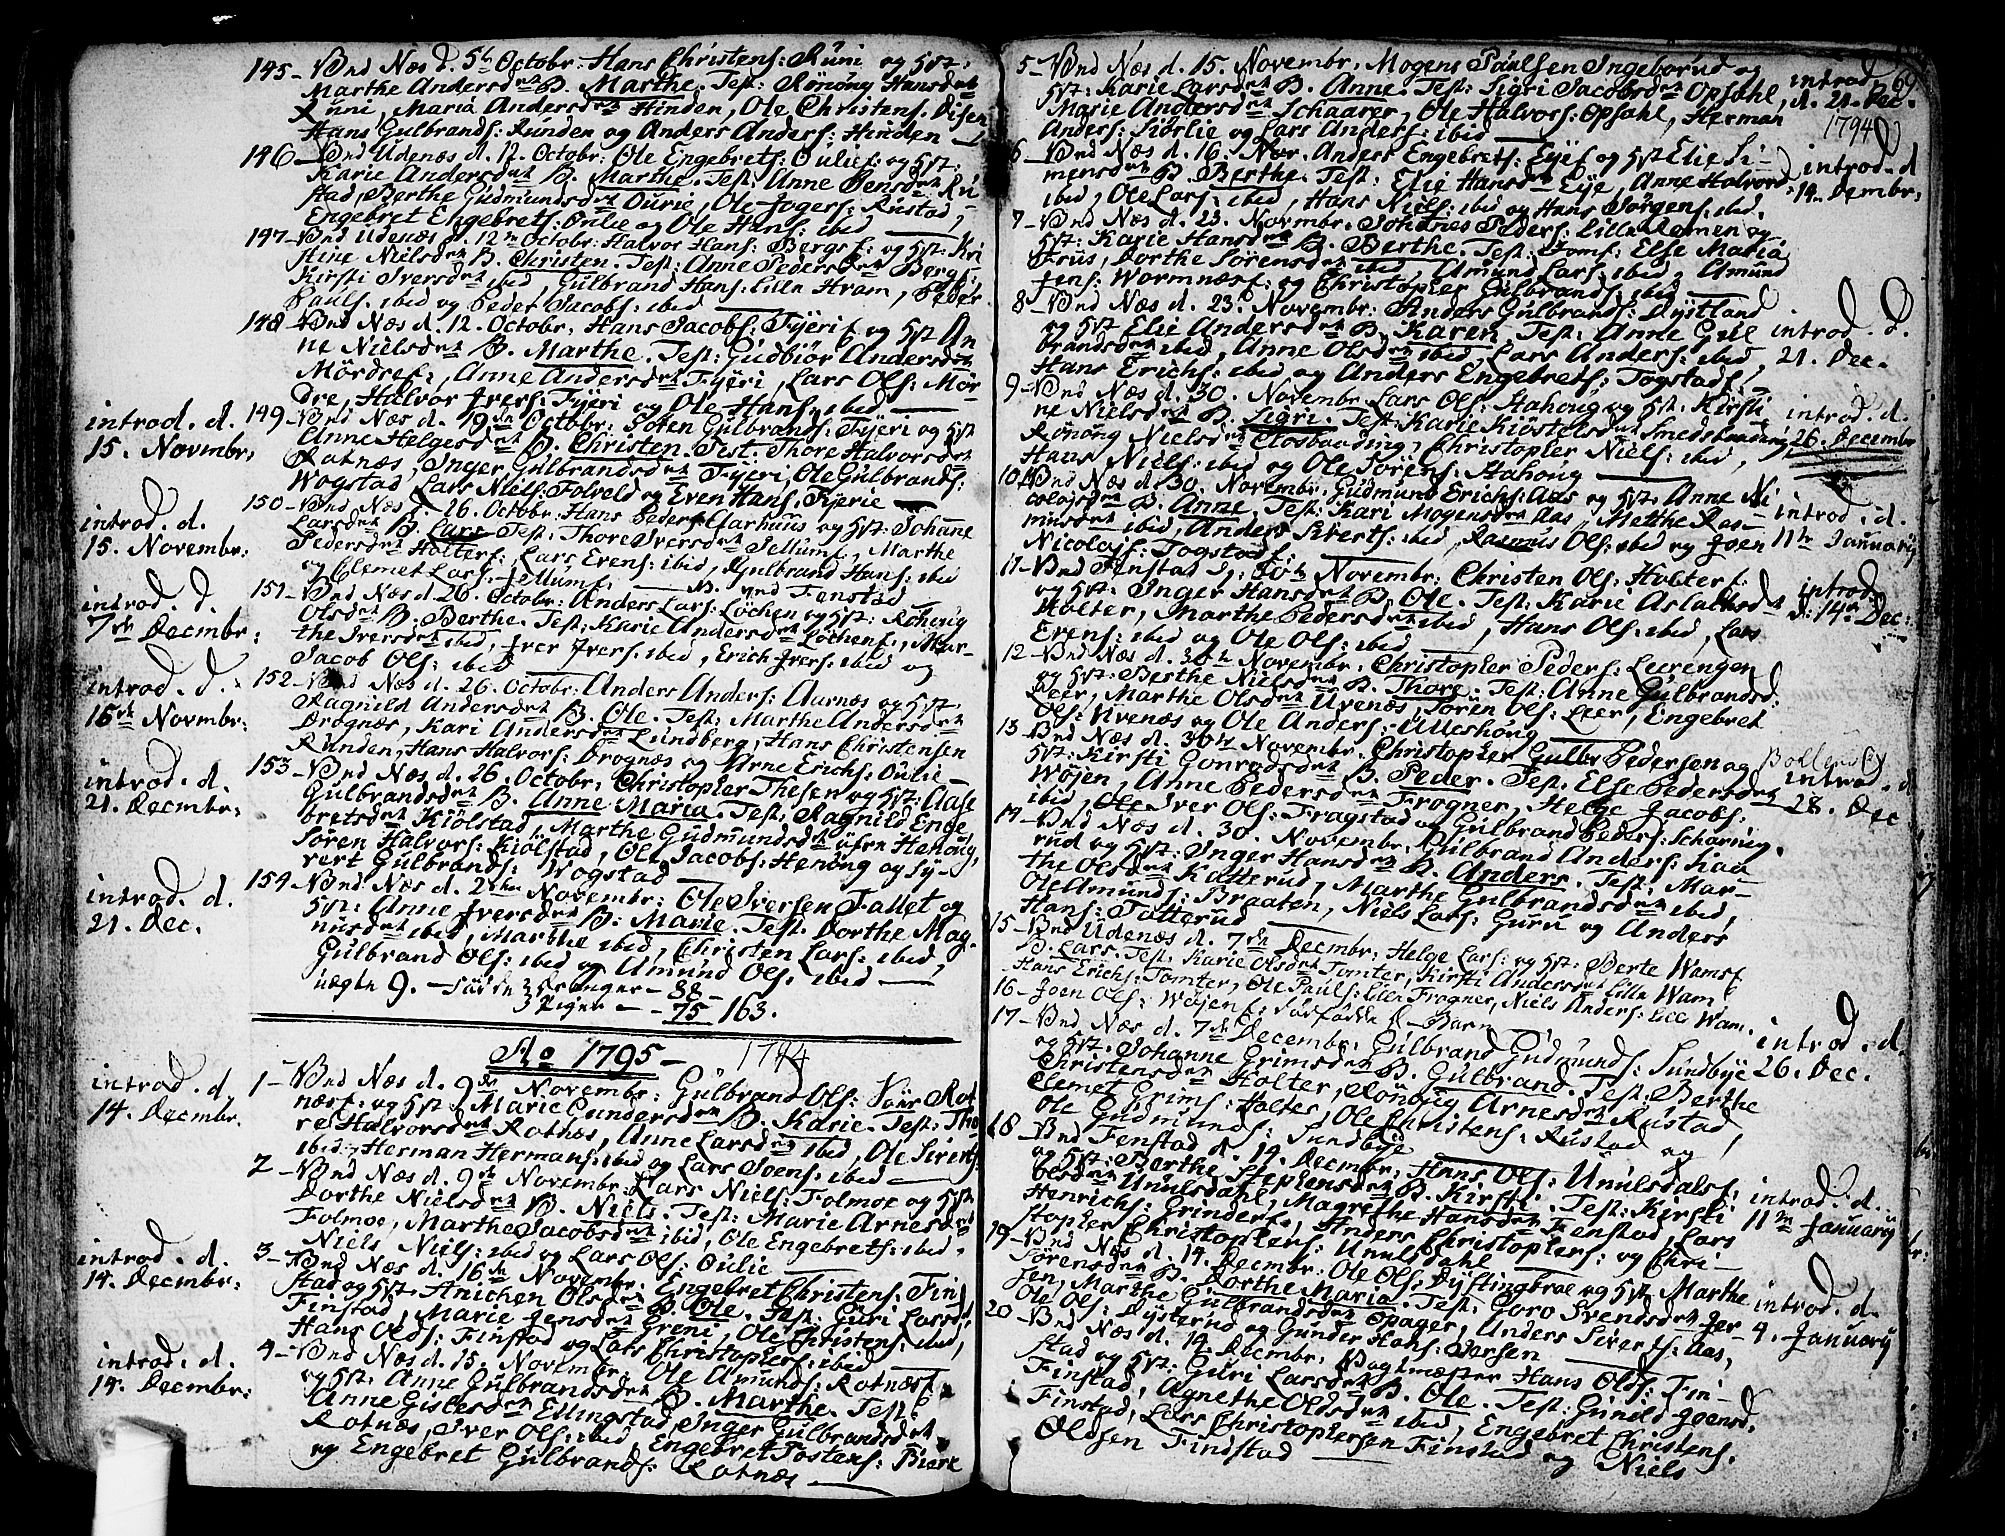 145 - Vnd Næs d. 5th Octobr: Hans Christens: Runi og Hst:
Marthe Andersdtr B. Marthe. Test: Rönnög Hansdtr
Runi, Maria Andersdtr Hinden, Ole Christens: Disen
Hans Gulbrands: Runden og Anders Anders: Hinden
146 - Vnd Udenæs d. 12. Octobr: Ole Engebrets: Oulie og Hst:
Karie Andersdtr B. Marthe. Test: Anne Jensdtr Ru
stad, Berthe Gudmundsdtr Ourie, Ole Jogers: Rustad,
Engebret Engebrets: Oulie og Ole Hans: ibid
147 - Vnd Udenæs d. 12te Octobr: Halvor Hans: Bergs: og Hst: Kri
stine Nielsdtr B. Christen. Test: Anne Pedersdtr Berg
Kirsti Iversdtr ibid, Gulbrand Hans: lille Hvam, Peder
Pauls: ibid og Peder Jacobs: ibid
148 Vnd Næs d. 12. Octobr: Hans Jacobs: Fyeri og Hst An
ne Nielsdtr B. Marthe. Test: Gudbiör Andersdtr
Mördre, Anne Andersdtr Fyeri, Lars Ols: Mör-
dre, Halvor Ivers: Fyeri og Ole Hans: ibid
introd. d.
15. Novembr:
149 - Vnd Næs d. 19de Octobr: Soren Gulbrands: Fyeri og Hst
Anne Helgesdtr B. Christen. Test. Thore Halvorsdtr
Rotnæs, Inger Gulbrandsdtr Fyeri, Ole Gulbrands:
Wogstad, Lars Niels: Folveld og Even Hans: Fyerie
introd. d.
15. Novembr:
150 - Vnd Næs d. 26. Octobr: Hans Peders: Aarhuus og Hst: Johane
Larsdtr B. Lars. Test: Thore Iversdtr Jellum, Marthe
Pedersdtr Holter, Lars Evens: ibid, Gulbrand Hans: ibid
og Clemet Lars: Jellum B. vnd Fenstad
introd. d.
7de Decmbr:
151 - Vnd Næs d. 26. Octobr: Anders Lars: Lochen og Hst: Rönnög
Olsdtr B. Berthe. Test: Karie Andersdtr Lochen, Mar-
the Iversdtr ibid, Iver Ivers: ibid, Erich Ivers: ibid og
Jacob Ols: ibid
introd. d.
16de Novmbr:
152 - Vnd Næs d. 26. Octobr: Anders Anders: Aarnæs og Hst
Ragnild Andersdtr B. Ole. Test: Marthe Andersdtr
Drognæs, Kari Andersdtr Lundberg, Hans Christensen
Runden, Hans Halvors: Drognæs og Arne Erichs: Oulie
introd. d.
21. Decmbr:
153 - Vnd Næs d. 26. Octobr: Christopher Thesen og Hst: Aase
Gulbrandsdtr B. Anne Maria. Test: Ragnild Enge
bretsdtr Kiölstad, Marthe Gudmundsdtr Henöng,
Sören Halvors: Kiölstad, Ole Jacobs: Henöng og Sy-
vert Gulbrands: Wogstad
introd. d.
21. Dec.
154 - Vnd: Næs d. 2den Novembr: Ole Iversen Fallet og
Hst: Anne Iversdtr B: Marie. Test. Dorthe Mag-
nusdtr ibid, Marthe ibid, Christen Lars: ibid,
Gulbrand Ols: ibid og Amund Ols: ibid
uægte 9. - Drenger - 88 -
Piger - - 75 163.
Ao 1795 - 1794
introd. d.
14. Decmbr.
1 - Vnd Næs d. 9de Novembr: Gulbrand Ols: Rot
næs: og Hst Marie Gundersdtr B. Karie. Test: Tho
re Halvorsdtr Rotnæs, Anne Larsdtr ibid, Ole Siverts:
ibid, Herman Hermans: ibid og Lars Joens: ibid
2 - Vnd Næs d. 9de Novembr: Lars Niels: Folmoe og Hst
Dorthe Nielsdtr B. Niels. Test: Marie Arnesdtr
Folmoe, Marthe Jacobsdtr ibid, Ole Engebrets: ibid,
Niels Niels: ibid og Lars Ols: Oulie
introd. d.
14. Decmbr:
3 - Vnd Næs d. 16de Novembr. Engebret Christens: Fin
stad og Hst Anichen Olsdtr B. Ole. Test: Guri Larsdtr
Finstad, Marie Jensdtr Grene, Ole Christens: ibid,
Hans Olds: Finstad og Lars Christophers: ibid
introd. d.
14. Decmbr:
4 - Vnd Næs d. 15. Novembr: Ole Amunds: Rotnæs
og Hst: Anne Gulbrandsdtr B. Marthe. Test:
Anne Gislesdtr Ellingstad, Inger Gulbrandsdtr
Rotnæs, Iver Ols: ibid, Engebret Tostens: Bierk
og Engebret Gulbrands: Rotnæs
69
5 - Vnd Næs d. 15. Novembr. Mogens Paulsen Ingeborud og
Hst: Karie Larsdtr B. Anne. Test: Sigri Jacobsdtr Opsahl,
Marie Andersdtr Schaarer, Ole Halvors: Opsahl, Herman
Anders: Siörlie og Lars Anders: ibid
introd.
d. 21. Dec.
1794
6 - Vnd Næs d. 16. Nov. Anders Engebrets: Eye og Hst Elie Si-
mensdtr B. Berthe. Test: Elie Hansdtr Eye, Anne Halvorsd
ibid, Ole Lars: ibid, Hans Niels: ibid og Hans Jörgens: ibid.
introd. d
14. Dembr:
7 - Vnd Næs d. 23. Novembr. Johanes Peders: Lille Remen og
Hst: Karie Hansdtr B. Berthe. Test: Jomf: Else Maria
Friis, Dorthe Sörensdtr ibid, Amund Lars: ibid, Amund
Jens: Wormnæs: og Christopher Gulbrands: ibid
8 - Vnd Næs d. 23. Novembr: Anders Gulbrands: Dystland
og Hst Elie Andersdtr B. Karen. Test: Anne Gul
brandsdtr ibid, Anne Olsdtr ibid, Lars Anders: ibid,
Hans Erichs: ibid og Anders Engebrets: Togstad
introd. d.
21. Dec.
9 - Vnd Næs d. 30. Novembr Lars Ols: Hahöug og Hst. Kirsti
ne Nielsdtr B. Sigri. Test: Karie Kiöstelsdtr Smedsbraading
Rönnög Nielsdtr Closbaading, Christopher Niels: ibid,
Hans Niels: ibid og Ole Sörens: Hahöug
introd. d.
26. Decembr
10 - Vnd Næs d. 30. Novembr: Gudmund Erichs: Aas og Hst: Anne Ni
colaysdtr B. Anne. Test: Kari Mogensdtr Aas, Metthe Ras-
musdtr ibid, Anders Siverts: ibid, Rasmus Ols: ibid og Joen
Nicolajs: Togstad
introd. d.
11te Januarij
11 - Vnd Fenstad d. 30th Novembr: Christen Ols: Holter:
og Hst: Inger Hansdtr B. Ole. Test: Karie Aslachsd
Holter, Marthe Pedersdtr ibid, Hans Ols: ibid, Lars
Evens: ibid og Ole Ols: ibid
introd.
d. 14. Dec:
12 - Vnd Næs d. 30th Novembr. Christopher Peders: Leerengen
og Hst: Berthe Nielsdtr B. Thore. Test: Anne Gulbrandsd.
Leer, Marthe Olsdtr Uvenæs, Sören Ols: Leer, Engebret
Ols: Uvenæs og Ole Anders: Ulleshöug
13 - Vnd Næs d. 30te Novembr. Christopher Gulbr Pedersen og
Hst: Kirsti Gonrodsdtr B. Peder. Test. Else Pedersdtr
Wojen, Anne Pedersdtr Frogner, Helge Jacobs:
ibid, Ole Iver Ols: Fragstad og Gulbrand Peders: Scharnig.
introd. d
28. Dec
14 - Vnd Næs d. 30. Novembr. Gulbrand Anders: Kaa
rud og Hst: Inger Hansdtr B. Anders. Test: Mar-
the Olsdtr Katterud, Marthe Gulbrandsdtr ibid,
Ole Amunds: Braaten, Niels Lars: Guru og Anders
Hans: Tutterud
15 - Vnd Udenæs d. 7de Decmbr, Helge Lars: og Hst: Berte Wams
B. Lars. Test: Karie Olsdtr Tomter, Kirsti Andersdtr lille Wam
Hans Erichs: Tomter, Ole Pauls: lille Frogner, Niels Anders: lille Wam.
16 - Joen Ols: Wojens: dödfödde B-Barn
17 - Vnd Næs d. 7de Decembr: Gulbrand Gudmunds: Sundbye
og Hst. Johanne Grimsdtr B. Gulbrand. Test: Berthe
Christensdtr Holter, Rönnög Arnesdtr Rustad,
Clemet Grims: Holter, Ole Christens: Rustad og
Ole Gudmunds: Sundbye
introd. d.
26. Dec.
18 - Vnd Fenstad d. 14. Decmbr: Hans Ols: Unulsdals:
og Hst: Berthe Stephensdtr B. Kirsti. Test: Kirsti
Olsdtr Unulsdahl, Magrethe Hansdtr Fenstad, Lars
Henrichs: Grinder, Anders Christophers: og Chri-
stopher Christophers: Unulsdahl
introd. d.
11te Januarij
19 - Vnd Næs d. 14. Decmbr: Ole Ols: Dystingbroe og Hst Marthe
Sörensdtr B. Dorthe Maria. Test: Goro Svendsdtr Jer
sen, Marthe Gulbrandsdtr Opager, Anders Siverts: Aas,
Ole Ols: Dysterud og Gunder Hans: Jersen
introd. d.
4. Januarij
20 - Vnd Næs d. 14. Decmbr: Vagtmester Hans Olds: Fin-
stad og Hst: Guri Larsdtr B. Ole. Test: Gunild Joensd,
Finstad, Agnethe Oldsdtr ibid, Engebret Christens.
Finstad, Lars Christophersen Finstad og Niels
Oldsen Findstad